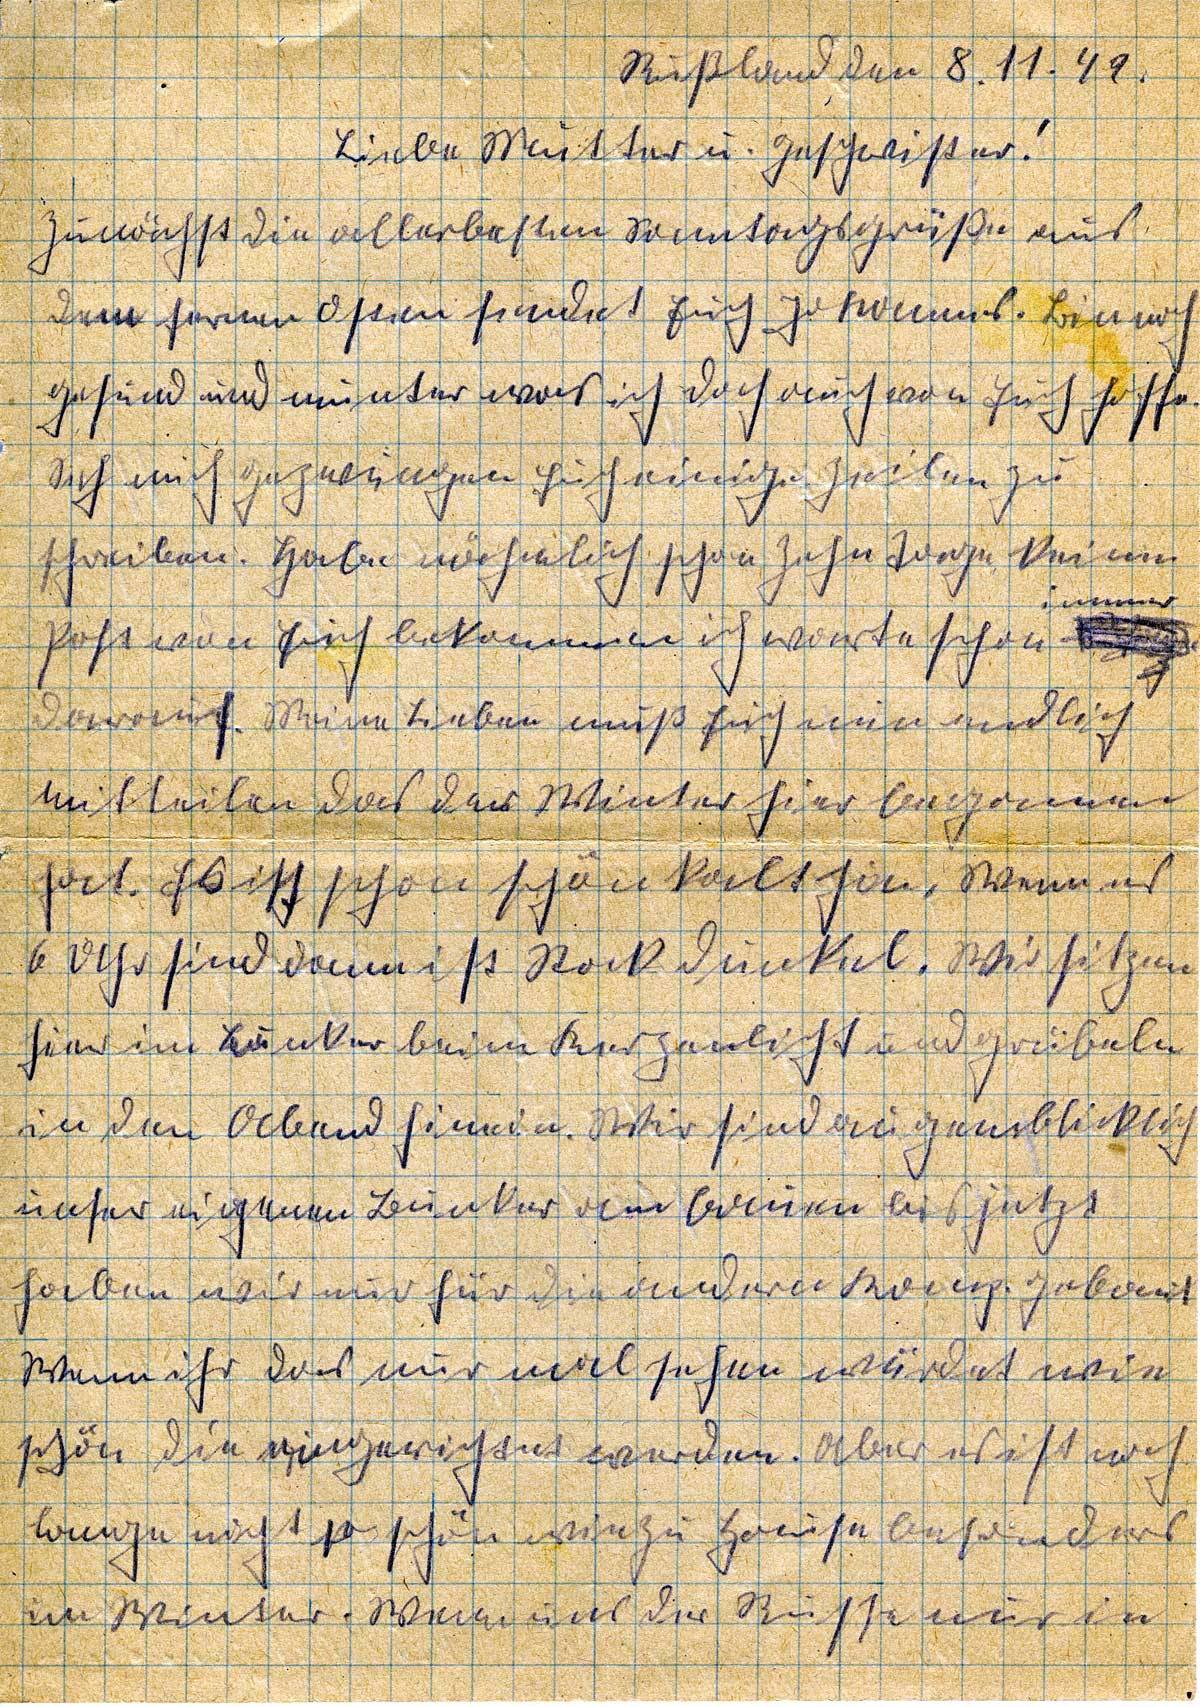 Rußland den 8.11.42.
Liebe Mutter u. Geschwister!
Zunächst die allerbesten Sonntagsgrüße aus
dem fernen Osten sendet Euch Johannes. Bin noch
gesund und munter was ich doch auch von Euch hoffe.
Seh mich gezwungen Euch einige Zeilen zu
schreiben. Habe nähmlich schon zehn Tage keine
immer
Post von Euch bekommen ich warte schon
darauf. Meine Lieben muß Euch nun endlich
mitteilen das der Winter hier begonnen
hat. Es ist schon schön kalt hier, Wenn es
6 Uhr sind dann ist Stock dunkel. Wir sitzen
hier im Bunker beim Kerzenlicht und grübeln
in den Abend hinein. Wir sind augenblicklich
unser eigenen Bunker am bauen bis jetzt
haben wir nur für die andern Komp. gebaut
Wenn ihr das nur mal sehen würdet wie
schön die eingerichtet werden. Aber es ist noch
lange nicht so schön wie zu Hause besonders
im Winter. Wenn uns der Russe nur in